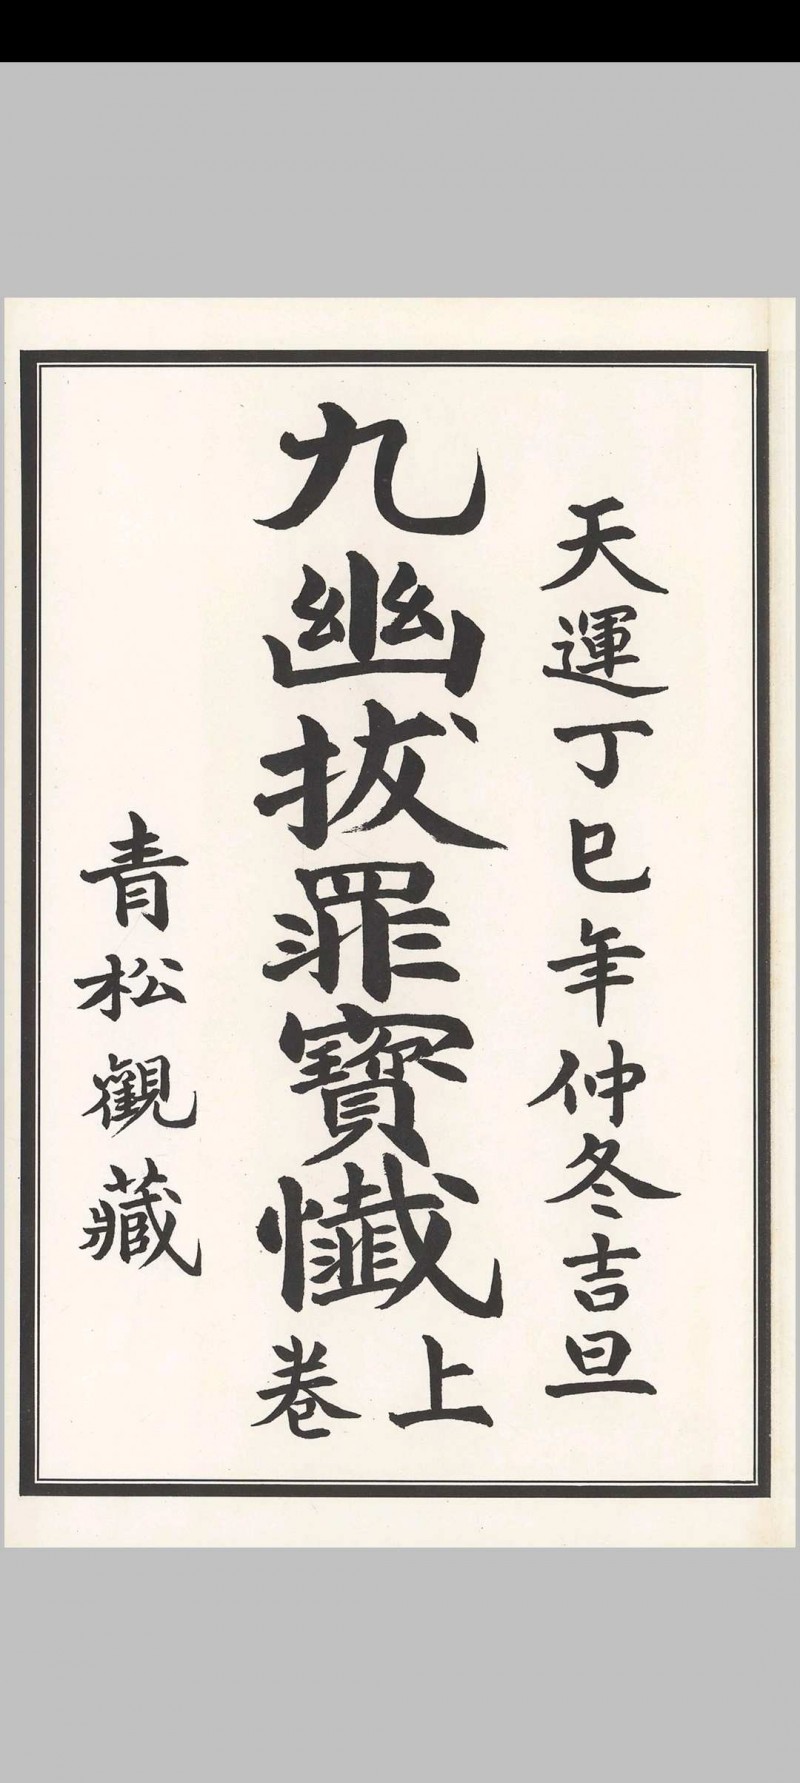 天運丁巳年仲冬吉旦
九幽拔罪寶懺上卷
青松觀藏